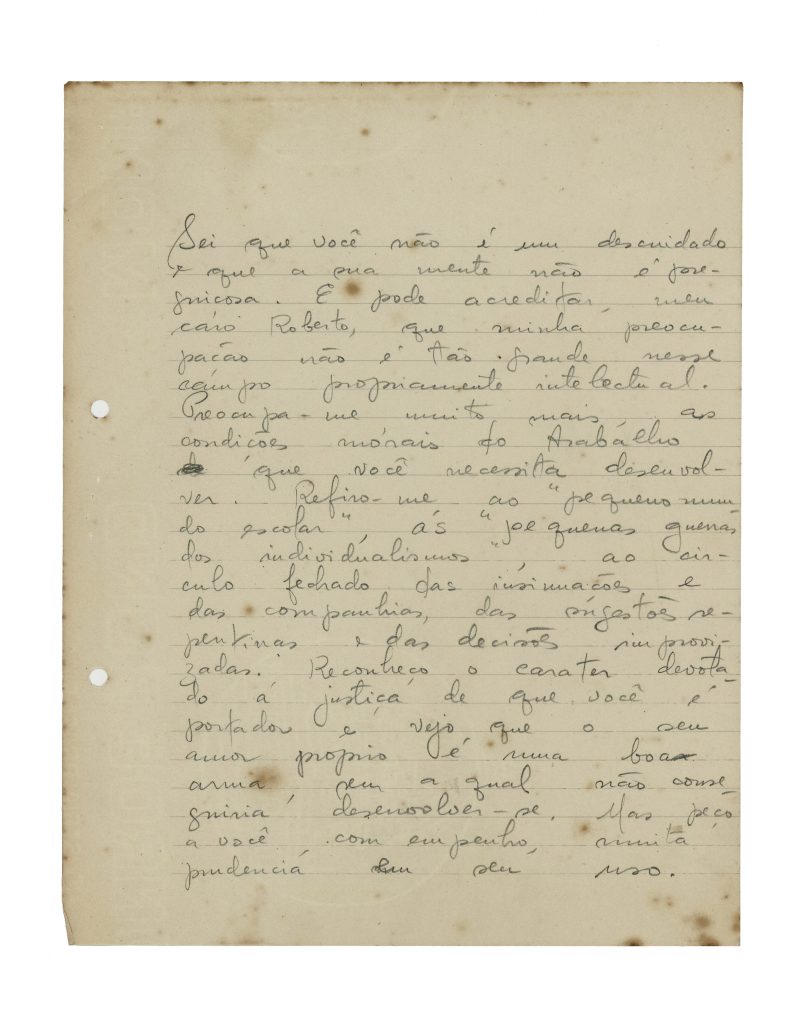 Sei que você não é um descuidado
e que a sua mente não é pre-
guiçosa. E pode acreditar, meu
caro Roberto, que minha preocu-
pação não é tão grande nesse
campo propriamente intelectual.
Preocupa-me muito mais as
condições morais do trabalho
que você necessita desenvol-
ver. Refiro-me ao "pequeno mun
do escolar", ás "pequenas guerras
dos individualismos", ao cir-
culo fechado das insinuações e
das companhias, das sugestões re-
pentinas e das decisões improvi-
zadas. Reconheço o carater devota-
do á justiça de que você é
portador e vejo que o seu
amor proprio é uma boa
arma, sem a qual não conse
guiria desenvolver-se. Mas peço
a você, com empenho, muita
prudencia em seu uso.